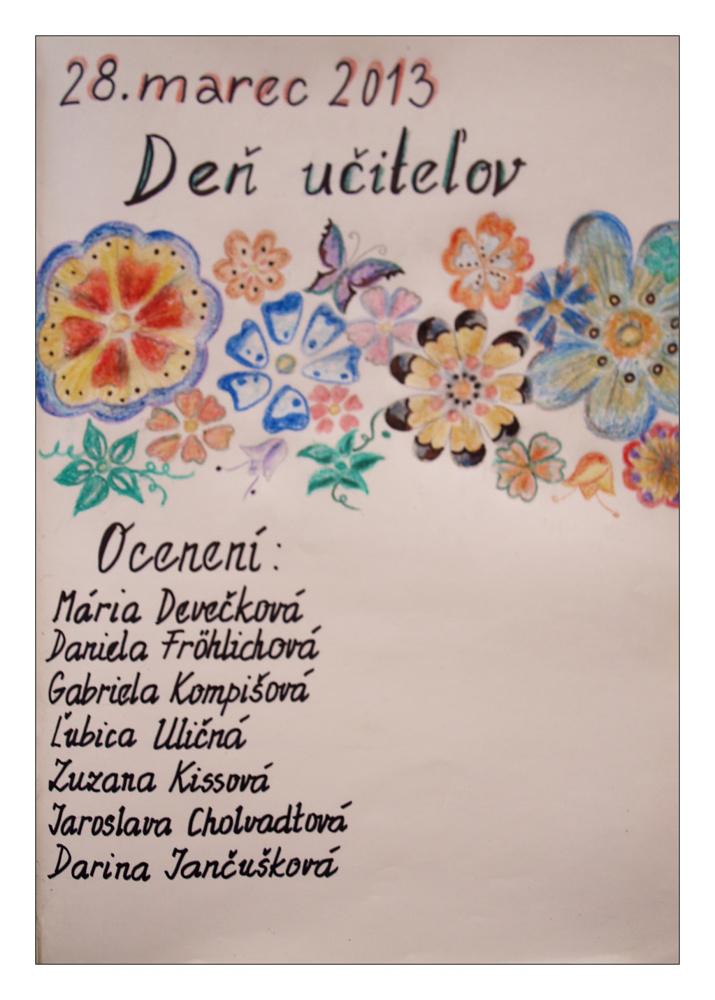 28. marec 2013
Deň učiteľov
Ocenení:
Mária Devečková
Daniela Fröhlichová
Gabriela Kompišová
Ľubica Uličná
Zuzana Kissová
Jaroslava Cholvadtová
Darina Jančušková